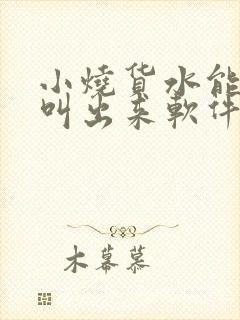 小燒货水能
叫出来軟件
木幕慕